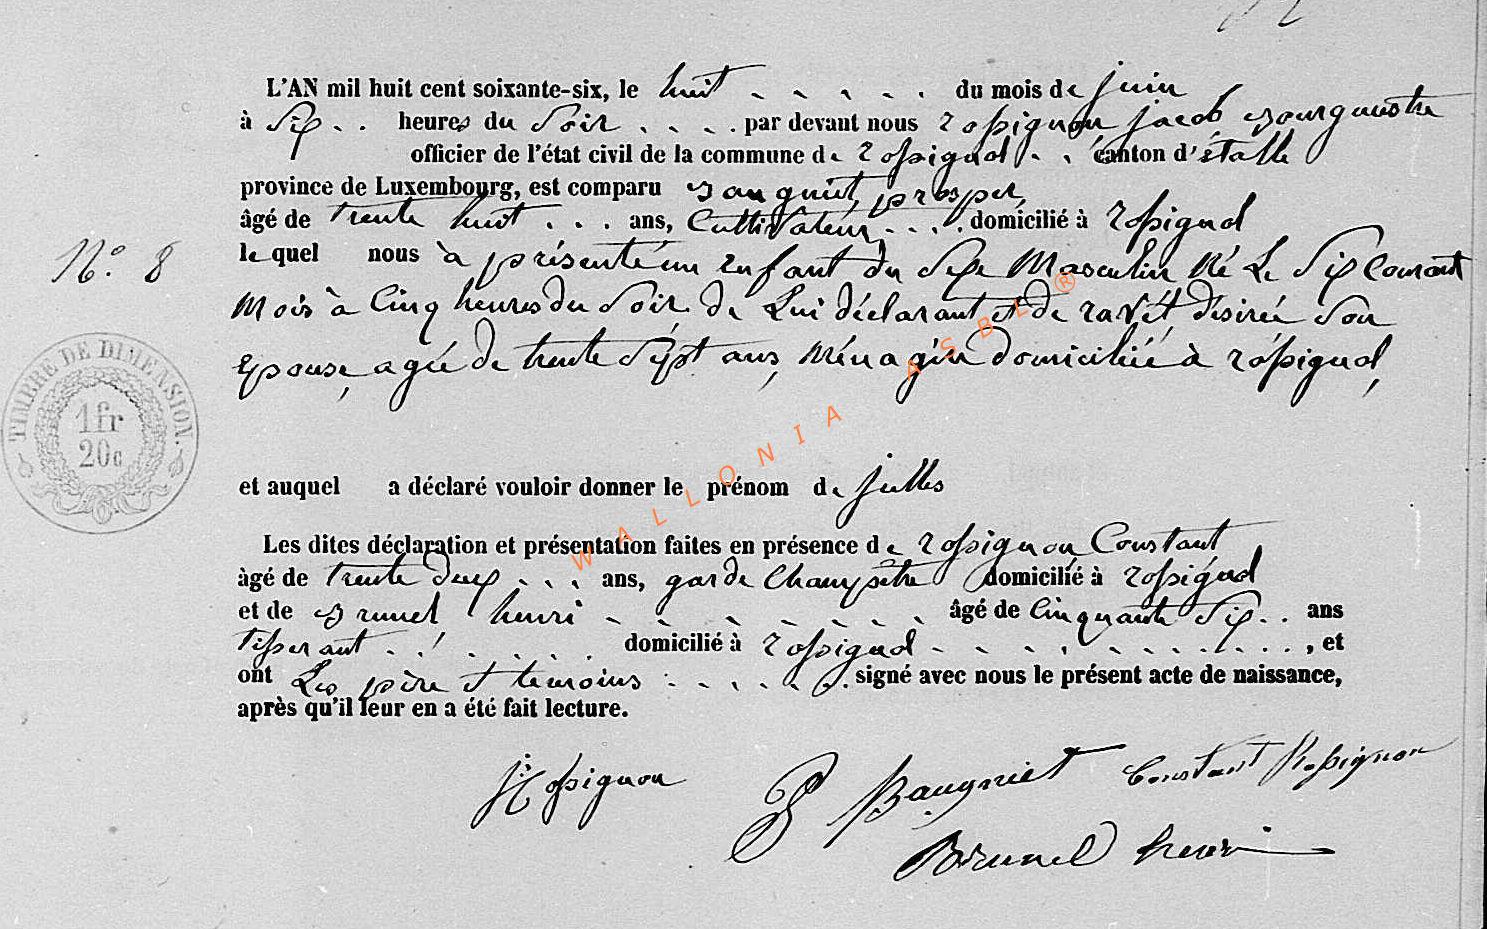 L'AN mil huit cent soixante-six, le huit du mois de juin
à Six heures du Soir par devant nous rossignon jacob Bourgmestre
officier de l'état civil de la commune de rossignol canton d'étalle
province de Luxembourg, est comparu Baugniet, prosper,
âgé de trente huit ans, Cultivateur domicilié à rossignol
N.° 8
le quel nous à présenté un enfant du Sexe Masculin Né Le Six Courant
Mois à Cinq heures du Soir de Lui déclarant et de ravet désirée Son
Epouse, agée de trente Sept ans, Ménagère domiciliée à rossignol,
TIMBRE DE DIMENSION.
1 fr
20 c
et auquel a déclaré vouloir donner le prénom de julles
Les dites déclaration et présentation faites en présence de rossignon Constant
âgé de trente deux ans, garde Champêtre domicilié à rossignol
et de Brunel henri âgé de Cinquante Six ans
tisserant domicilié à rossignol , et
ont Les père et temoins signé avec nous le présent acte de naissance,
après qu'il leur en a été fait lecture.
J Rossignon P Baugniet Constant Rossignon
Brunel henri
WALLONIA ASBL ®